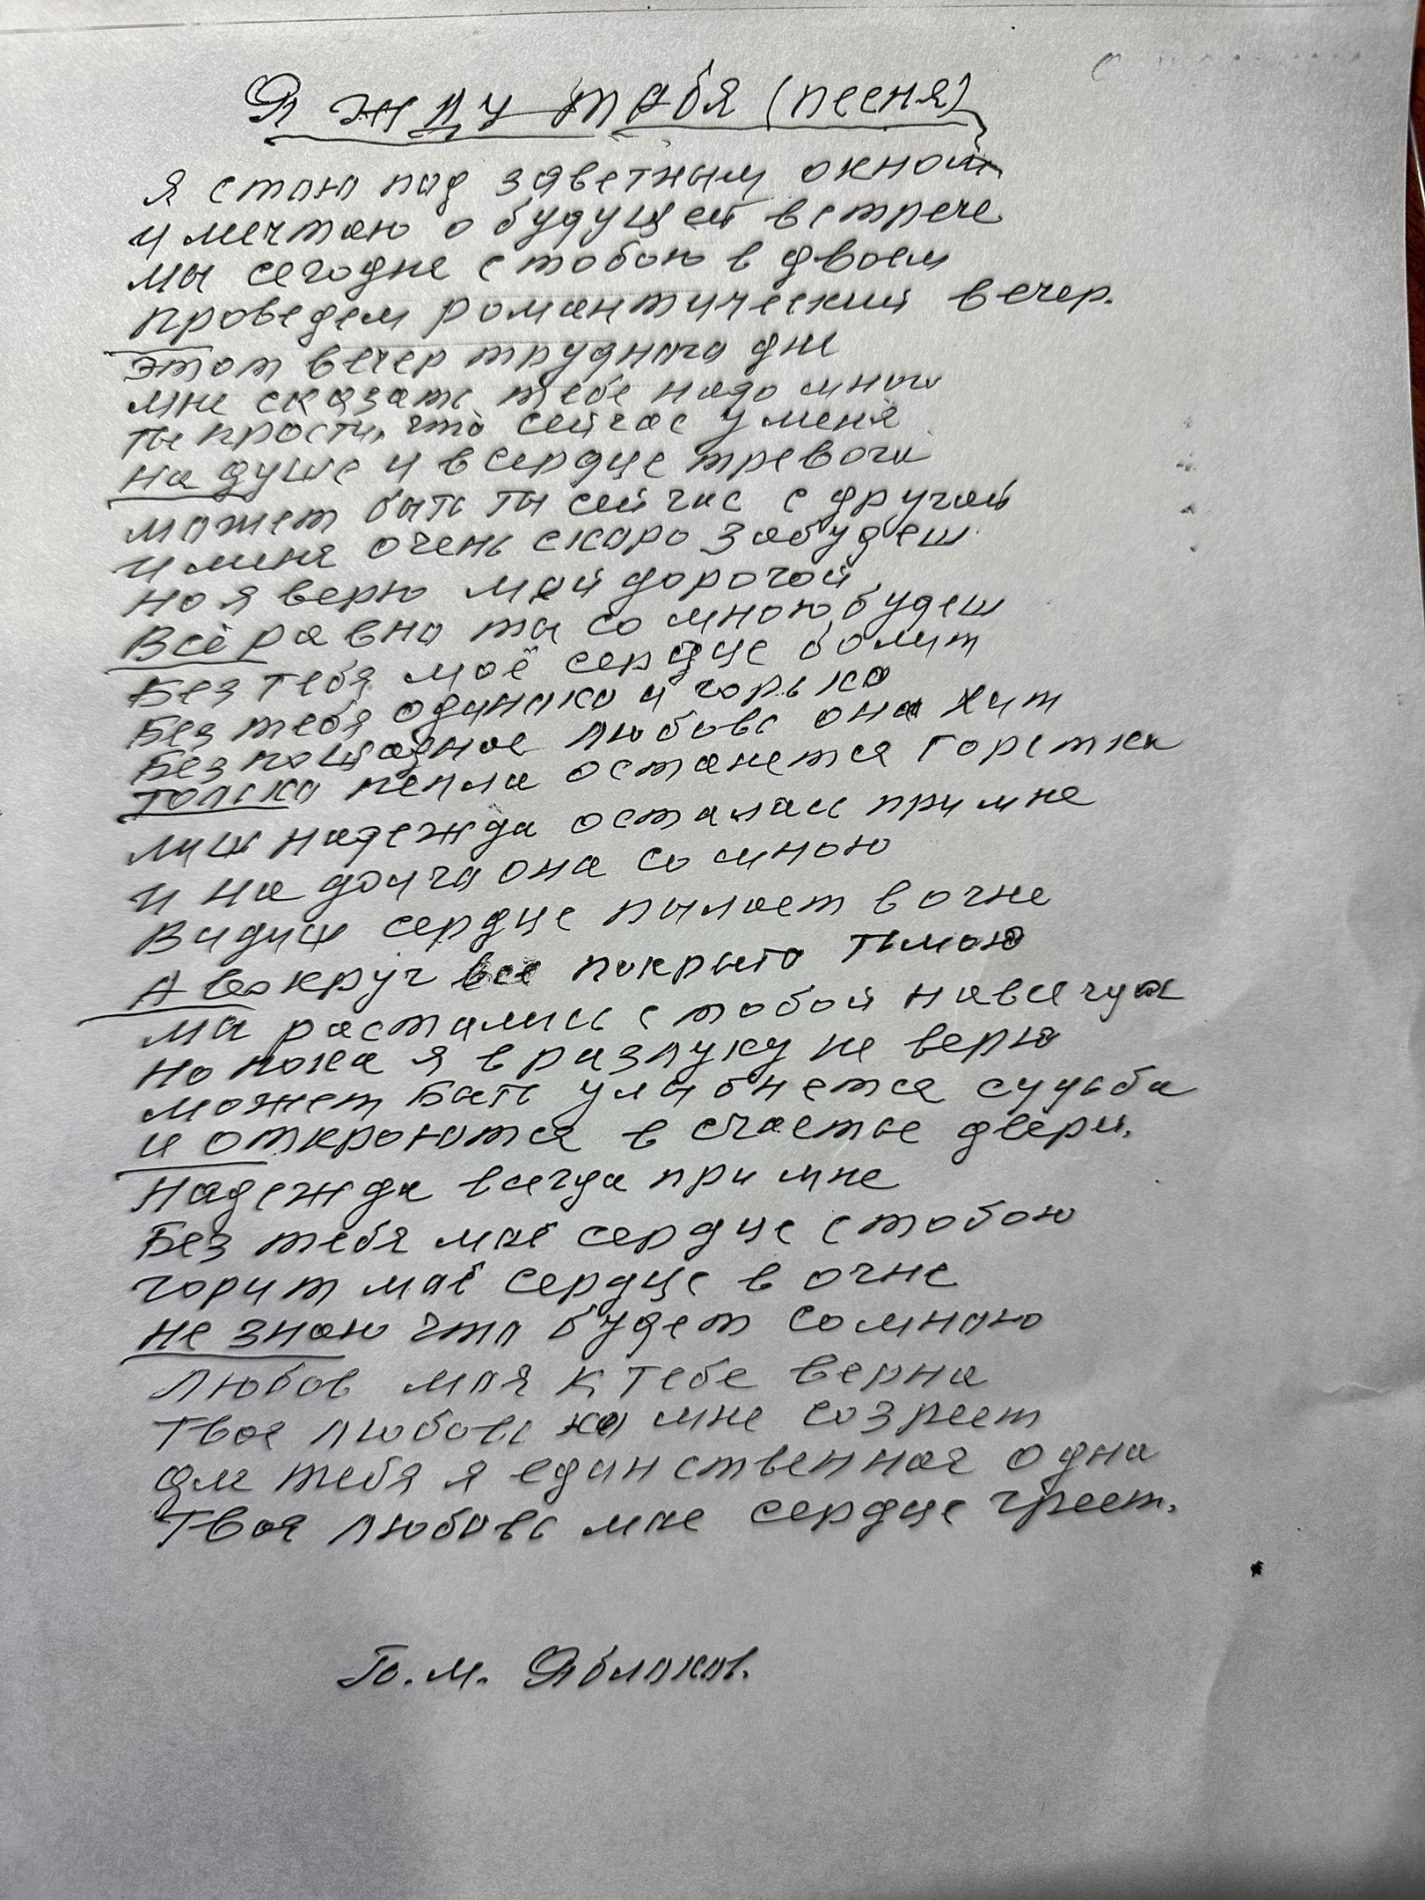 Я жду тебя (песня)
Я стою под заветным окном
и мечтаю о будущей встрече
мы сегодня с тобою в двоем
проведем романтический вечер.
этот вечер трудного дня
мне сказать тебе надо много
ты прости, что сейчас у меня
на душе и в сердце тревога
может быть ты сейчас с другой
и меня очень скоро забудеш
но я верю мой дорогой,
Всё равно ты со мною будеш
Без тебя моё сердце болит
Без тебя одиноко и горько
Безпощадное любовь она
только пепла останется горстка
лиш надежда осталась при мне
и на долго она со мною
Видиш сердце пылает в огне
А вокруг все покрыто тьмою
мы растались с тобой навсегда
но пока я в разлуку не верю
может быть улыбнется судьба
и откроются в счастье двери.
Надежда всегда при мне
Без тебя моё сердце с тобою
горит моё сердце в огне
не знаю что будет со мною
Любов моя к тебе верна
Твоя любовь ко мне созреет
для тебя я единственная одна
Твоя любовь мое сердце греет.
М. Яблоков.